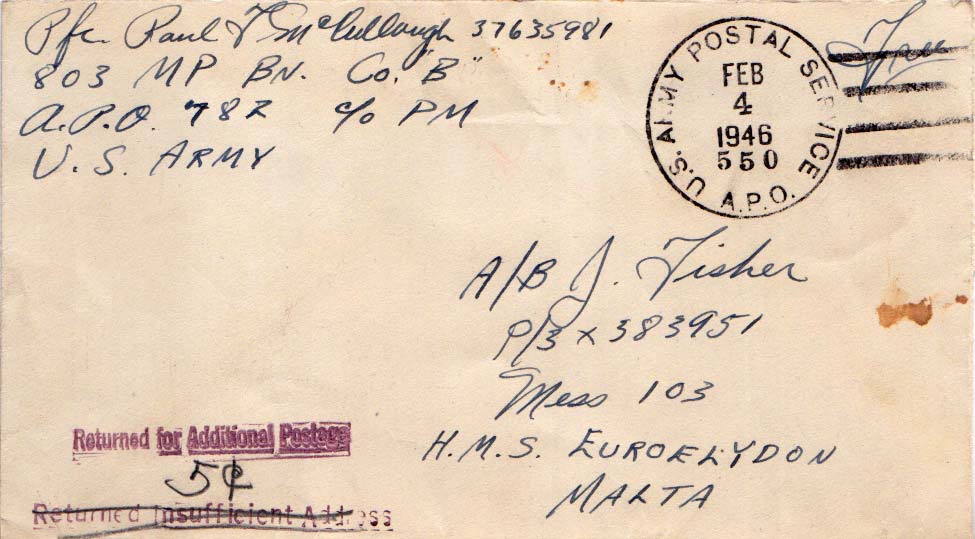 Pfc. Paul F McCullough 37635981
803 MP Bn. Co. "B"
A.P.O. 782 c/o PM
U.S. ARMY
Free
U.S. ARMY POSTAL SERVICE
FEB
4
1946
550
A.P.O.
A/B J. Fisher
P/JX 383951
Mess 103
H.M.S. EUROELYDON
MALTA
Returned for Additional Postage
5¢
Returned Insufficient Address